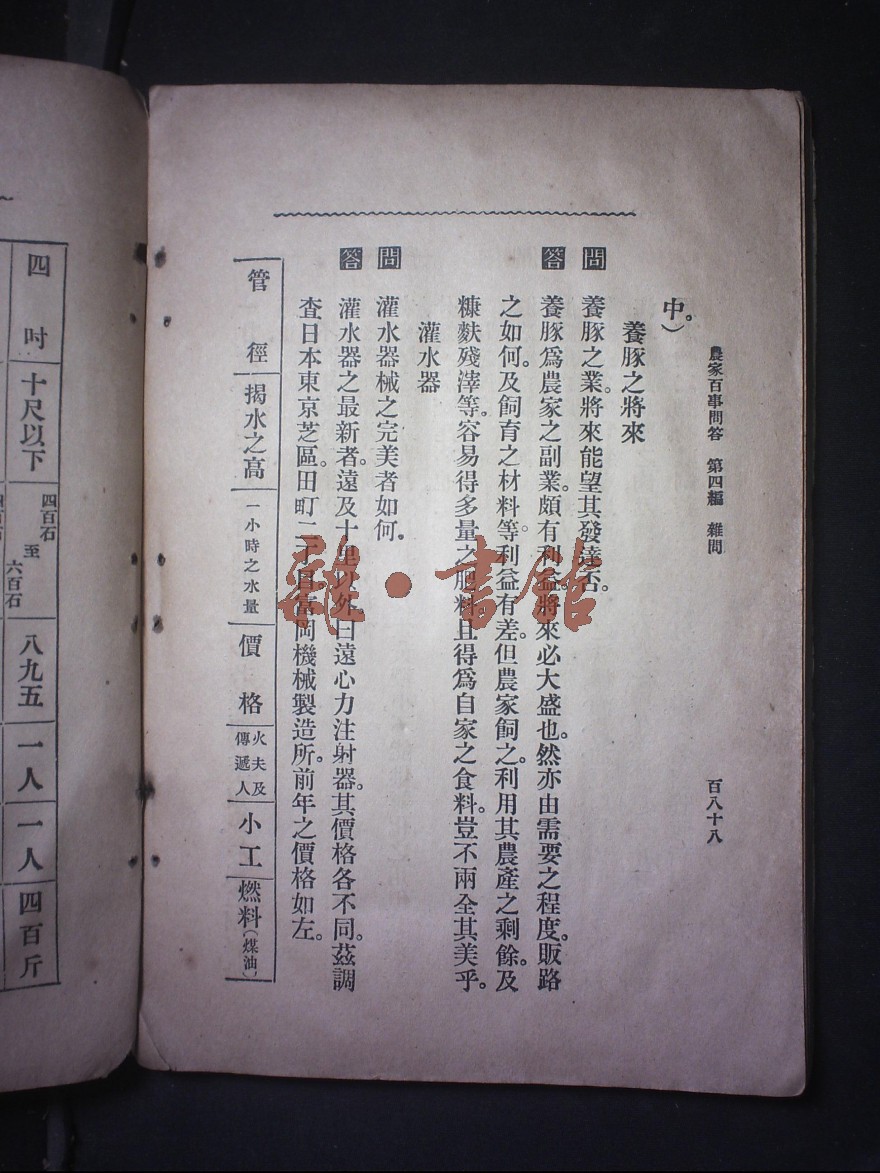 農家百事問答　第四編　雜問
百八十八
中。）
養豚之將來
問　養豚之業。將來能望其發達否。
答　養豚爲農家之副業。頗有利益。將來必大盛也。然亦由需要之程度。販路
之如何。及飼育之材料等。利益有差。但農家飼之。利用其農產之剩餘。及
糠麩殘滓等。容易得多量之肥料。且得爲自家之食料。豈不兩全其美乎。
灌水器
問　灌水器械之完美者如何。
答　灌水器之最新者。遠及十里以外。曰遠心力注射器。其價格各不同。茲調
査日本東京芝區。田町二丁目。富岡機械製造所。前年之價格如左。
管徑　揭水之高　一小時之水量　價格　火夫及傳遞人　小工　燃料（煤油）
四吋　十尺以下　四百石至六百石　八九五　一人　一人　四百斤
四百石
雜·書館